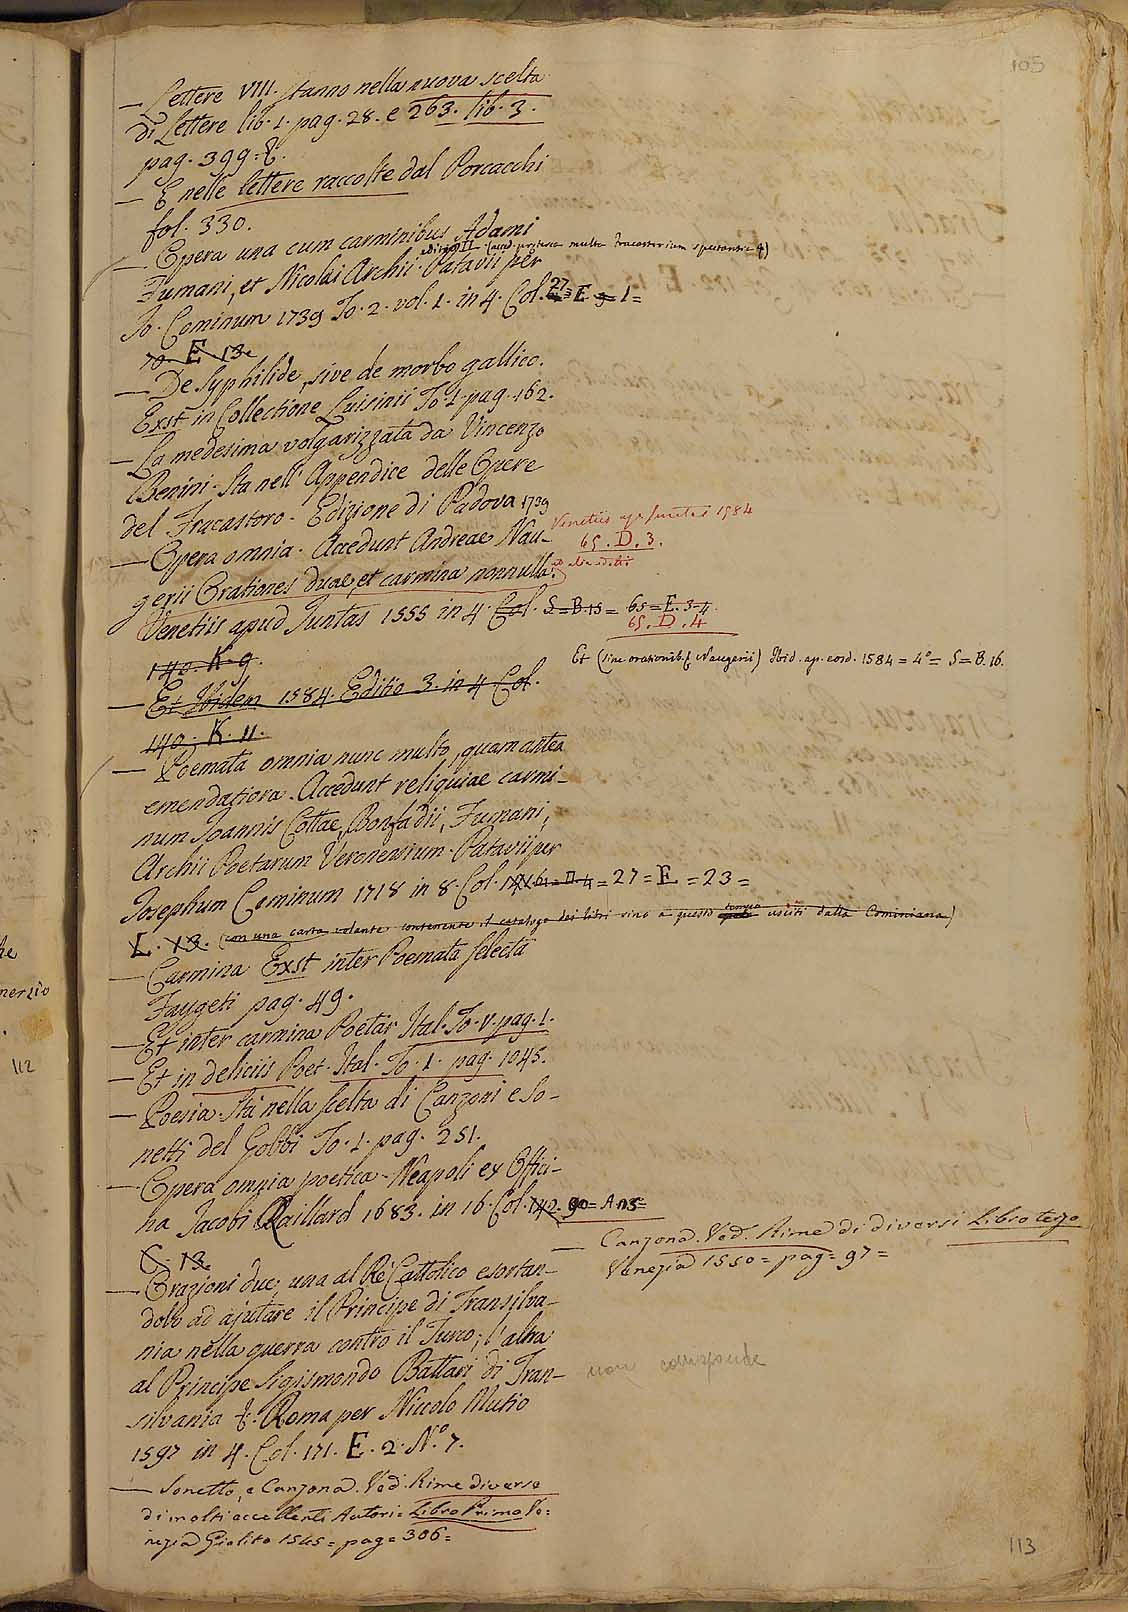 105
— Lettere VIII. stanno nella nuova scelta
di Lettere lib. 1. pag. 28. e 263. lib. 3.
pag. 399. &.
— E nelle lettere raccolte dal Porcacchi
fol. 330.
— Opera una cum carminibus Adami
editio II (acced. multa Fracastorium spectantia &)
Fumani, et Nicolai Archii. Patavii per
Jo. Cominum 1739 To. 2. vol. 1. in 4. Col. 27 = E = 1 =
70. E 13.
— De Syphilide, sive de morbo gallico.
Exst in Collectione Luisinii To. 1. pag. 162.
— La medesima volgarizzata da Vincenzo
Benini. Sta nell' Appendice delle Opere
del Fracastoro. Edizione di Padova 1739
— Opera omnia. Accedunt Andreae Nau-
Venetiis ap. Juntas 1584
65. D. 3.
gerii Orationes duae, et carmina nonnulla.
Venetiis apud Juntas 1555 in 4. Col. S = B. 15 = 65 = E. 3-4.
65. D. 4
140. K. 9.
Et (sine orationib. Naugerii) Ibid. ap. eosd. 1584 = 4° = S = B. 16.
— Et Ibidem 1584. Editio 3. in 4 Col.
140. K. 11.
— Poemata omnia nunc multo, quam antea
emendatiora. Accedunt reliquiae carmi-
num Joannis Cottae, Bonfadii, Fumani,
Archii Poetarum Veronensium. Patavii per
Josephum Cominum 1718 in 8. Col. = 27 = E = 23 =
E. 13. (con una carta volante contenente il catalogo dei libri sino a questo tempo usciti dalla Cominiana)
— Carmina Exst inter Poemata selecta
Faygeti pag. 49.
— Et inter carmina Poetar Ital. To. V. pag. 1.
— Et in deliciis Poet. Ital. To. 1. pag. 1045.
— Poesia. Sta nella scelta di Canzoni e So-
netti del Gobbi To. 1. pag. 251.
— Opera omnia poetica. Neapoli ex Offici-
na Jacobi Raillard 1683. in 16. Col. 142. 90 =
C. 13.
— Canzona. Ved. Rime di diversi Libro terzo
Venezia 1550 = pag = 97 =
— Orazioni due, una al Rè Cattolico esortan-
dolo ad ajutare il Principe di Transilva-
nia nella guerra contro il Turco; l'altra
al Principe Sigismondo Battari di Tran-
non corrisponde
silvania &. Roma per Niccolo Mutio
1597 in 4. Col. 171. E. 2. N.° 7.
— Sonetto, e Canzona. Ved. Rime diverse
di molti eccellenti Autori = Libro Primo Ve=
nezia Giolito 1545 = pag = 306 =
113
112